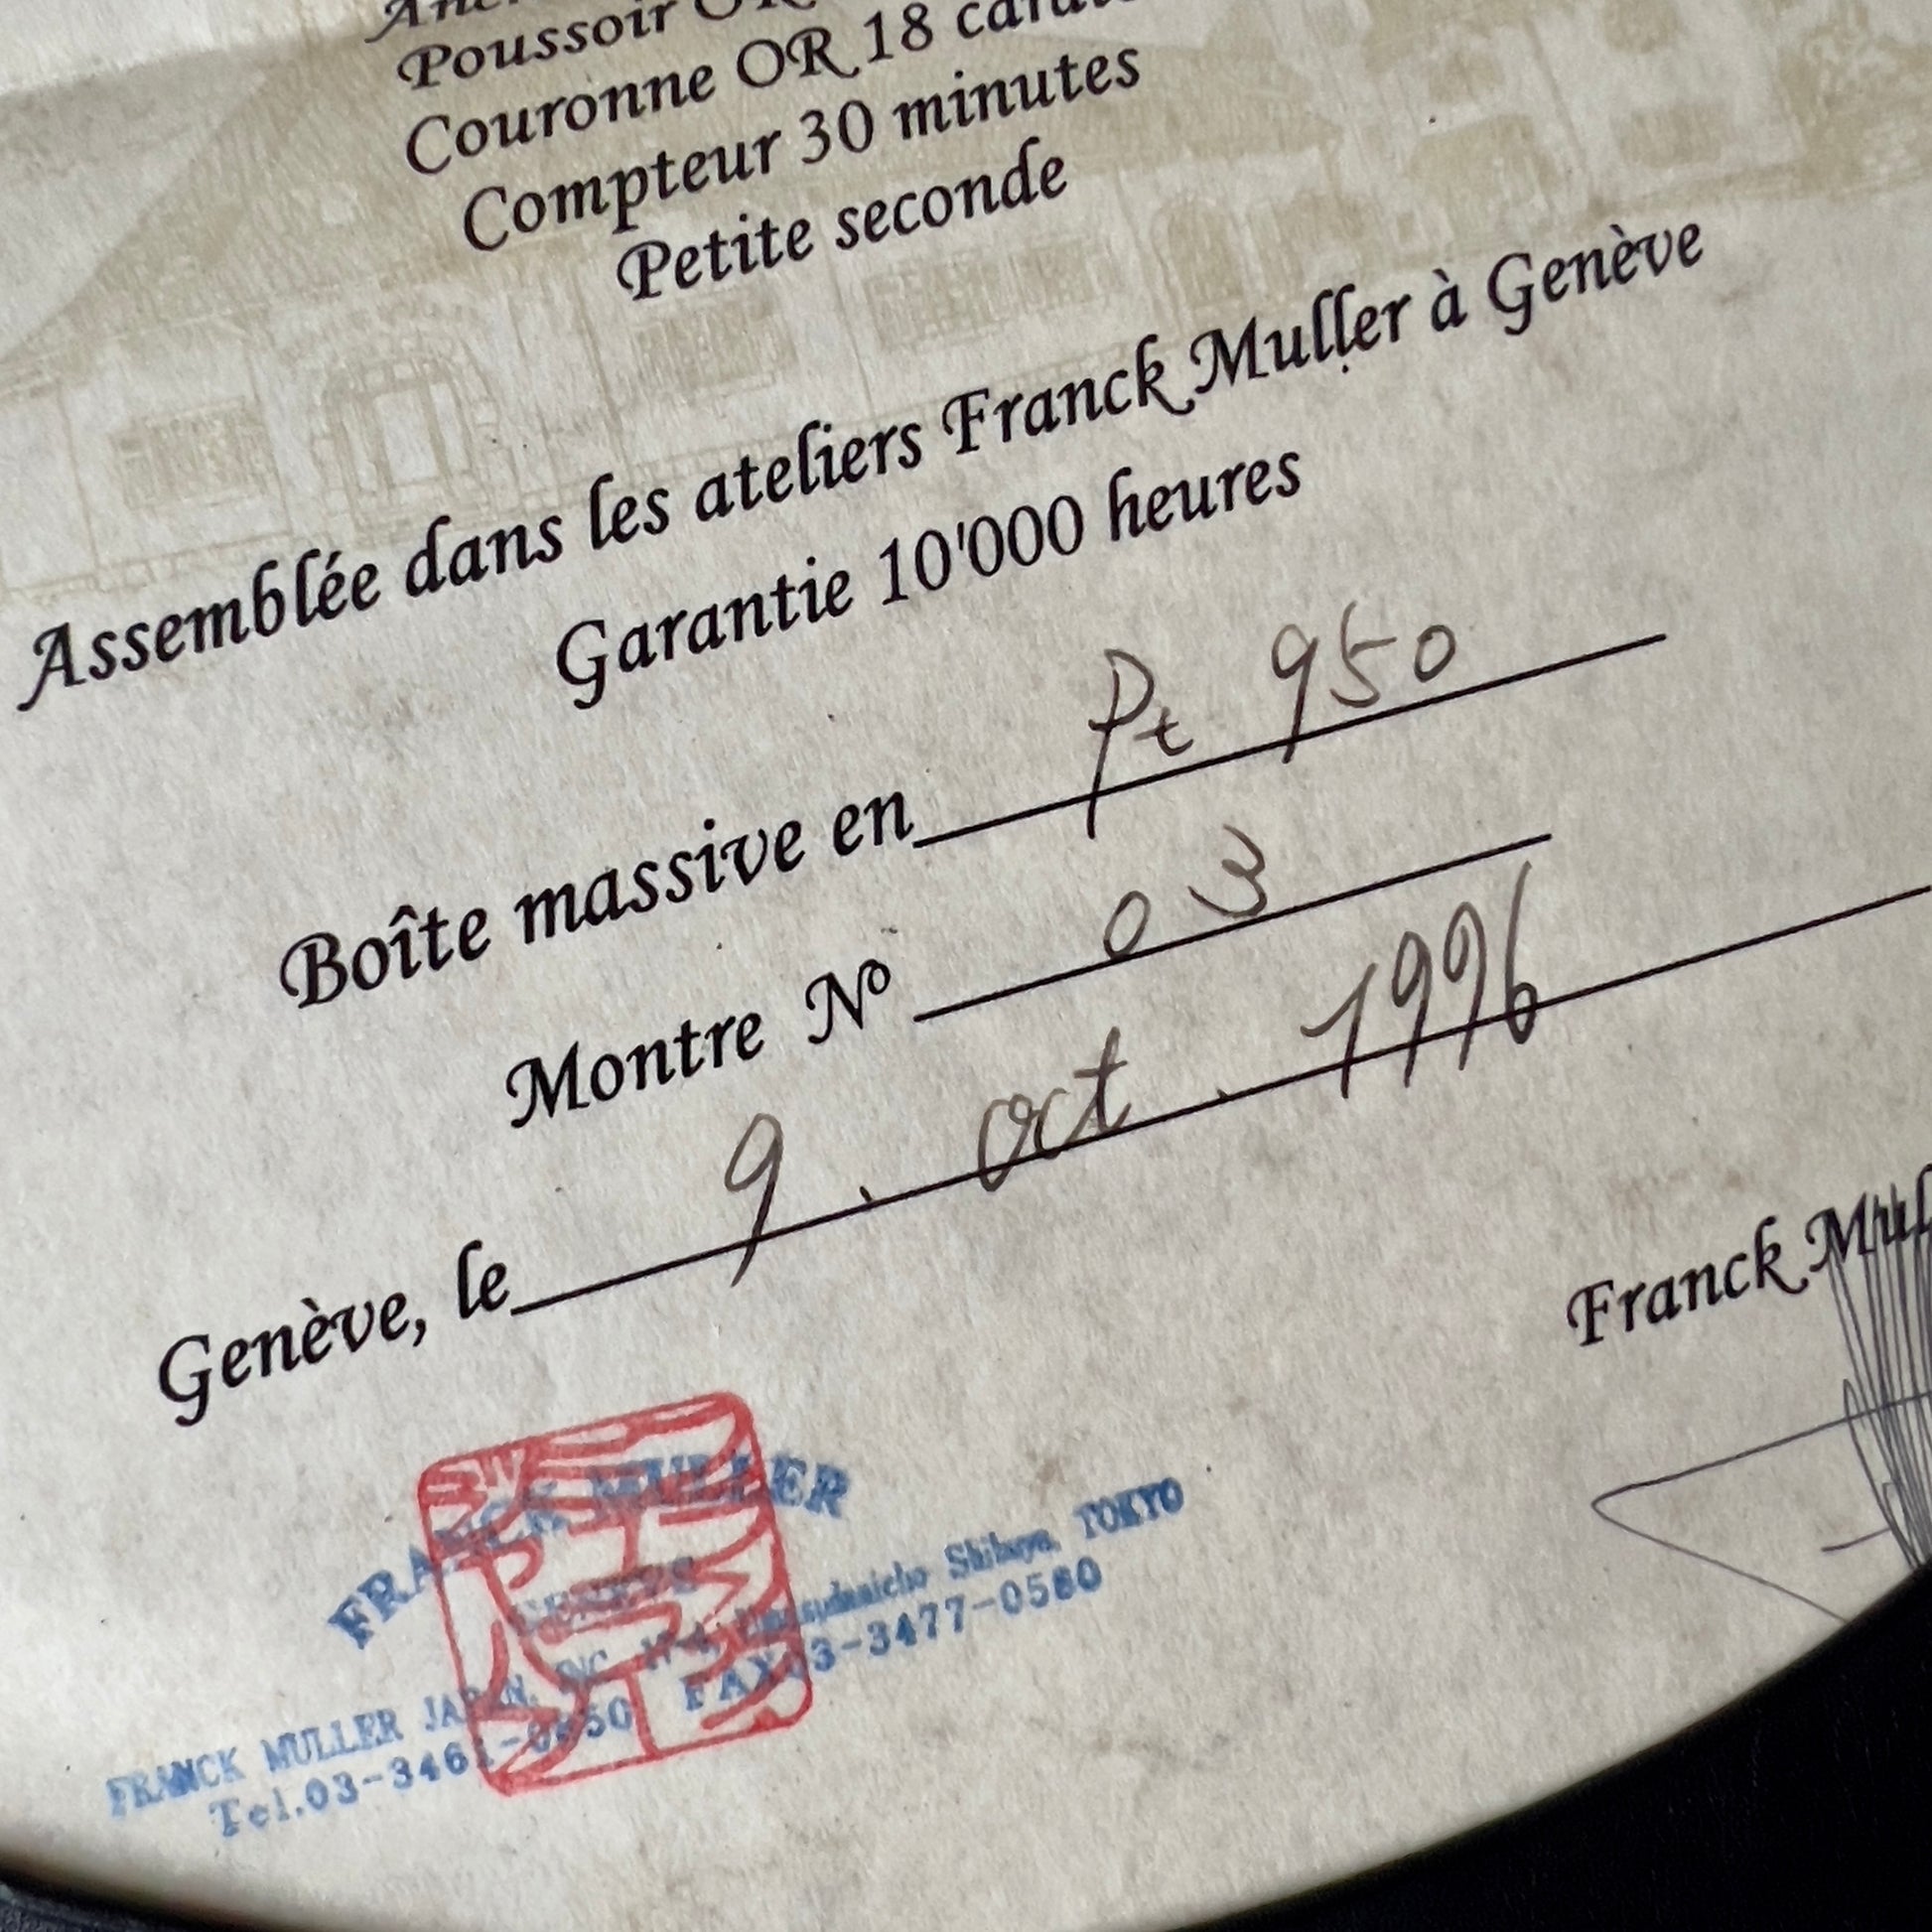 Poussoir OR
Couronne OR 18
Compteur 30 minutes
Petite seconde
Assemblée dans les ateliers Franck Muller à Genève
Garantie 10'000 heures
Boîte massive en Pt 950
Montre Nº 03
Genève, le 9. oct. 1996
Franck
FRANCK MULLER
GENEVE
FRANCK MULLER JAPAN, INC. Shibuya, TOKYO
Tel.03-346 FAX.03-3477-0580